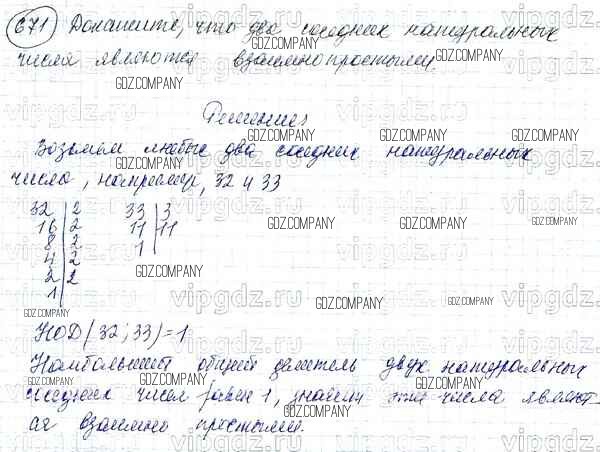 671 Докажите, что два соседних натуральных
числа являются взаимно простыми.
Решение:
Возьмем любые два соседних натуральных
числа, например, 32 и 33
32 | 2 33 | 3
16 | 2 11 | 11
8 | 2 1
4 | 2
2 | 2
1
НОД (32; 33) = 1
Наибольший общий делитель двух натуральных
соседних чисел равен 1, значит эти числа являют-
ся взаимно простыми.
GDZ.COMPANY
vipgdz.ru